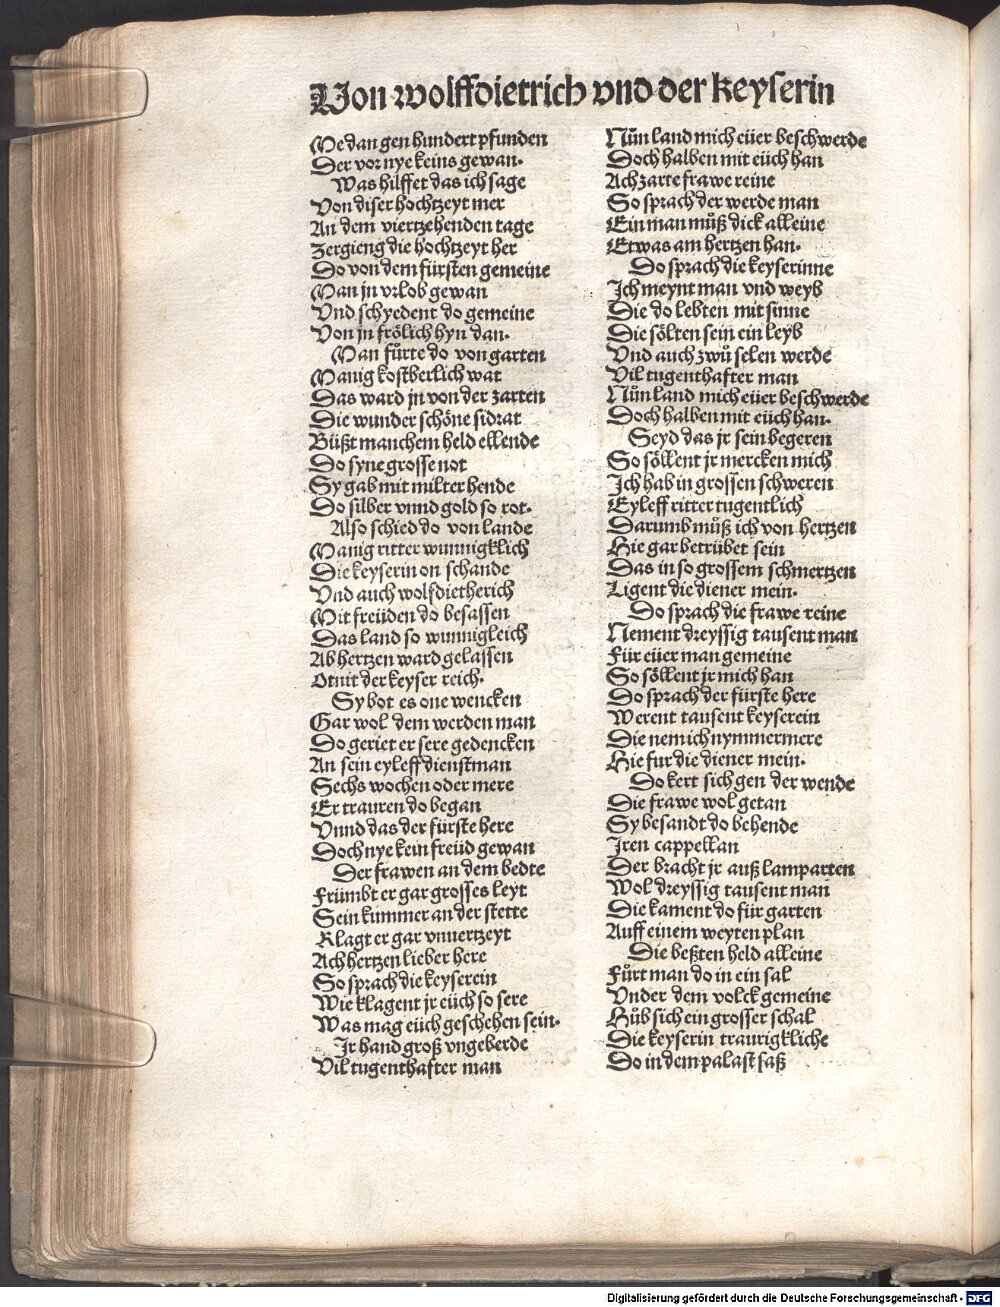 Von wolffdietrich vnd der keyserin
Me dan gen hundert pfunden
Der vor nye keins gewan.
Was hilffet das ich sage
Von diser hochtzeyt mer
An dem viertzehenden tage
Zergieng die hochtzeyt her
Do von dem fürsten gemeine
Man jn vrlob gewan
Vnd schyedent do gemeine
Von jn frölich hyn dan.
Man fürte do von garten
Manig kostberlich wat
Das ward jn von der zarten
Die wunder schöne sidrat
Büßt manchem held ellende
Do syne grosse not
Sy gab mit milter hende
Do silber vnnd gold so rot.
Also schied do von lande
Manig ritter wunnigklich
Die keyserin on schande
Vnd auch wolfdietherich
Mit freüden do besassen
Das land so wunnigleich
Ab hertzen ward gelassen
Otnit der keyser reich.
Sy bot es one wencken
Gar wol dem werden man
Do geriet er sere gedencken
An sein eyleff dienstman
Sechs wochen oder mere
Er trauren do began
Vnnd das der fürste here
Doch nye kein freüd gewan
Der frawen an dem bedte
Frümbt er gar grosses leyt
Sein kummer an der stette
Klagt er gar vnuertzeyt
Ach hertzen lieber here
So sprach die keyserein
Wie klagent jr eüch so sere
Was mag eüch geschehen sein.
Ir hand groß vngeberde
Vil tugenthafter man
Nůn land mich eüer beschwerde
Doch halben mit eüch han
Ach zarte frawe reine
So sprach der werde man
Ein man můß dick alleine
Etwas am hertzen han.
Do sprach die keyserinne
Ich meynt man vnd weyb
Die do lebten mit sinne
Die sölten sein ein leyb
Vnd auch zwů selen werde
Vil tugenthafter man
Nůn land mich eüer beschwerde
Doch halben mit eüch han.
Seyd das jr sein begeren
So söllent jr mercken mich
Ich hab in grossen schweren
Eyleff ritter tugentlich
Darumb můß ich von hertzen
Hie gar betrübet sein
Das in so grossem schmertzen
Ligent die diener mein.
Do sprach die frawe reine
Nement dreyssig tausent man
Für eüer man gemeine
So söllent jr mich han
Do sprach der fürste here
Werent tausent keyserein
Die nem ich nymmermere
Hie fur die diener mein.
Do kert sich gen der wende
Die frawe wol getan
Sy besandt do behende
Iren cappellan
Der bracht jr auß lamparten
Wol dreyssig tausent man
Die kament do für garten
Auff einem weyten plan
Die beßten held alleine
Fůrt man do in ein sal
Vnder dem volck gemeine
Hůb sich ein grosser schal
Die keyserin traurigkliche
Do in dem palast saß
Digitalisierung gefördert durch die Deutsche Forschungsgemeinschaft - DFG